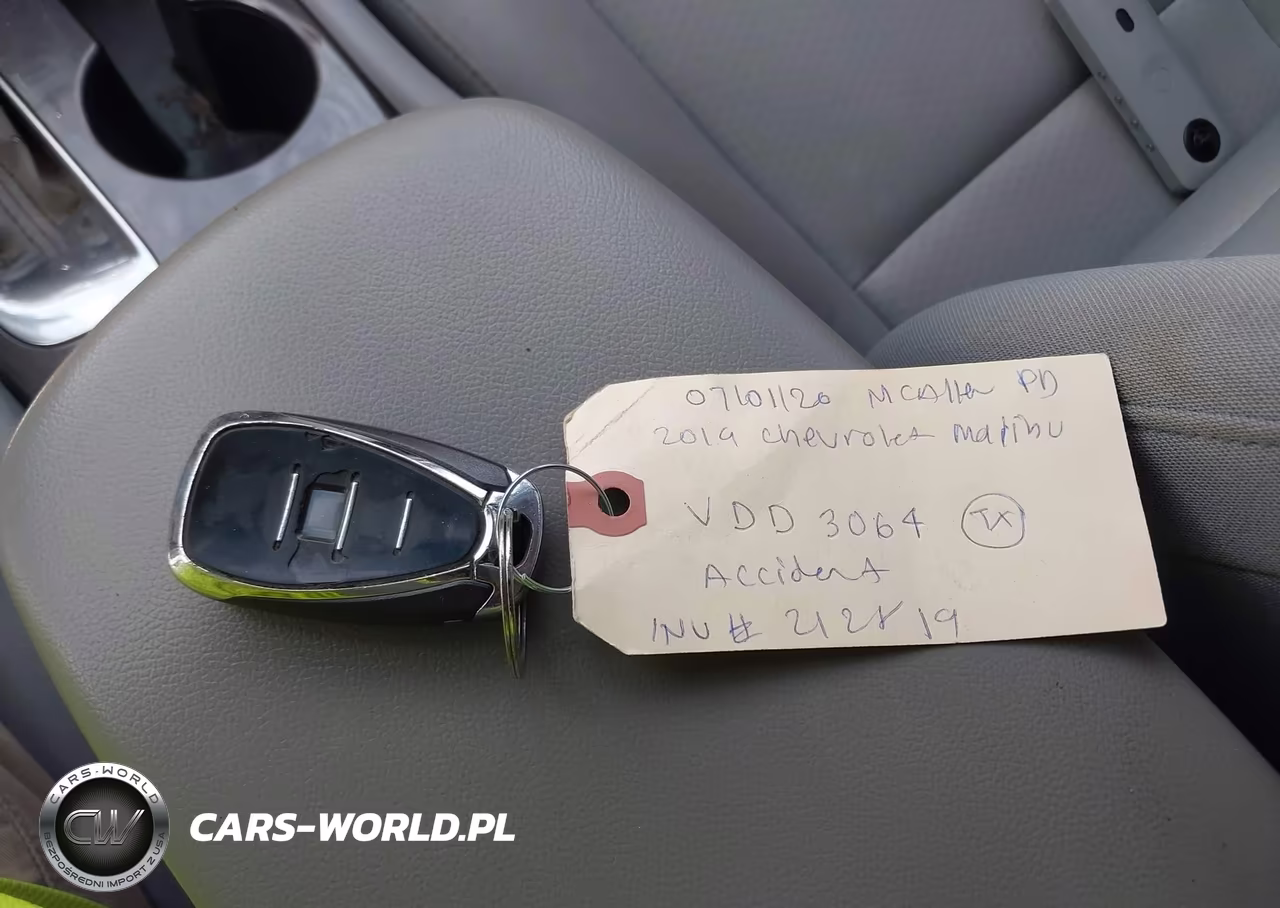 07/01/20 MCAllen PD
2019 Chevrolet Malibu
VDD 3064 TX
Accident
INV # 212819
CARS-WORLD
CW
BEZPOŚREDNI IMPORT Z USA
CARS-WORLD.PL